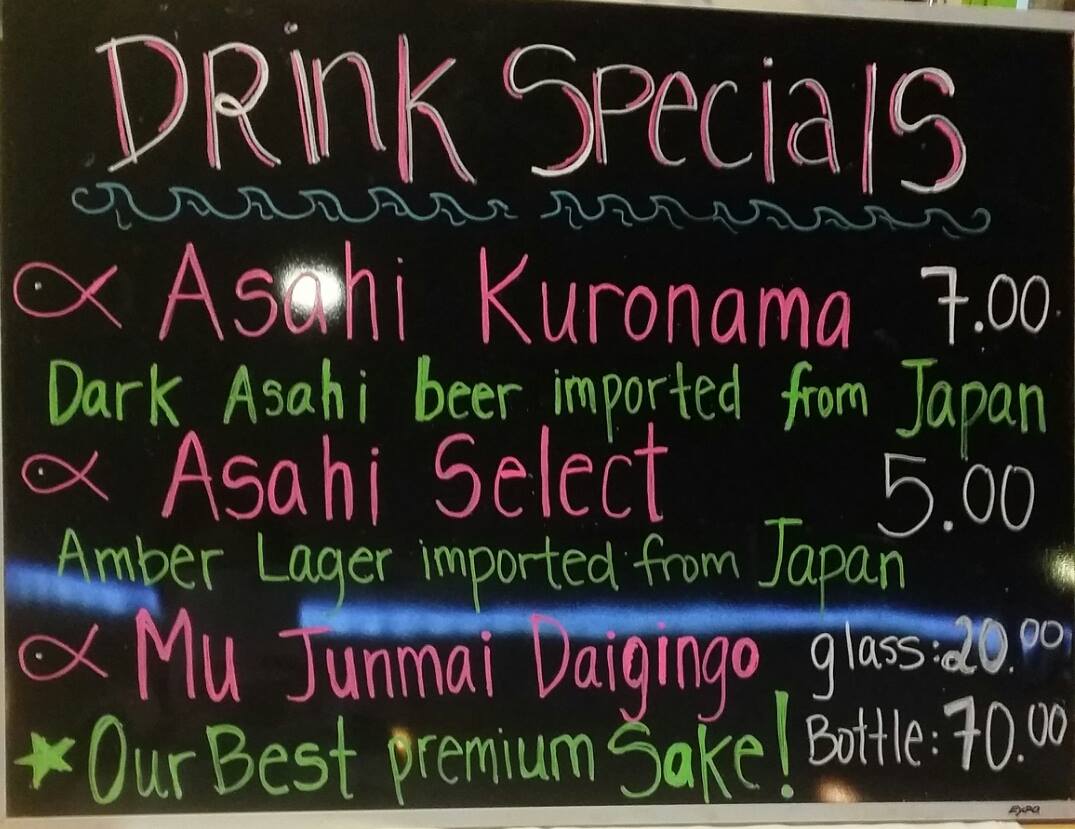 DRink Specials
Asahi Kuronama 7.00
Dark Asahi beer imported from Japan
Asahi Select 5.00
Amber Lager imported from Japan
Mu Junmai Daigingo glass: 20.00
Our Best premium Sake! Bottle: 70.00
EXPO